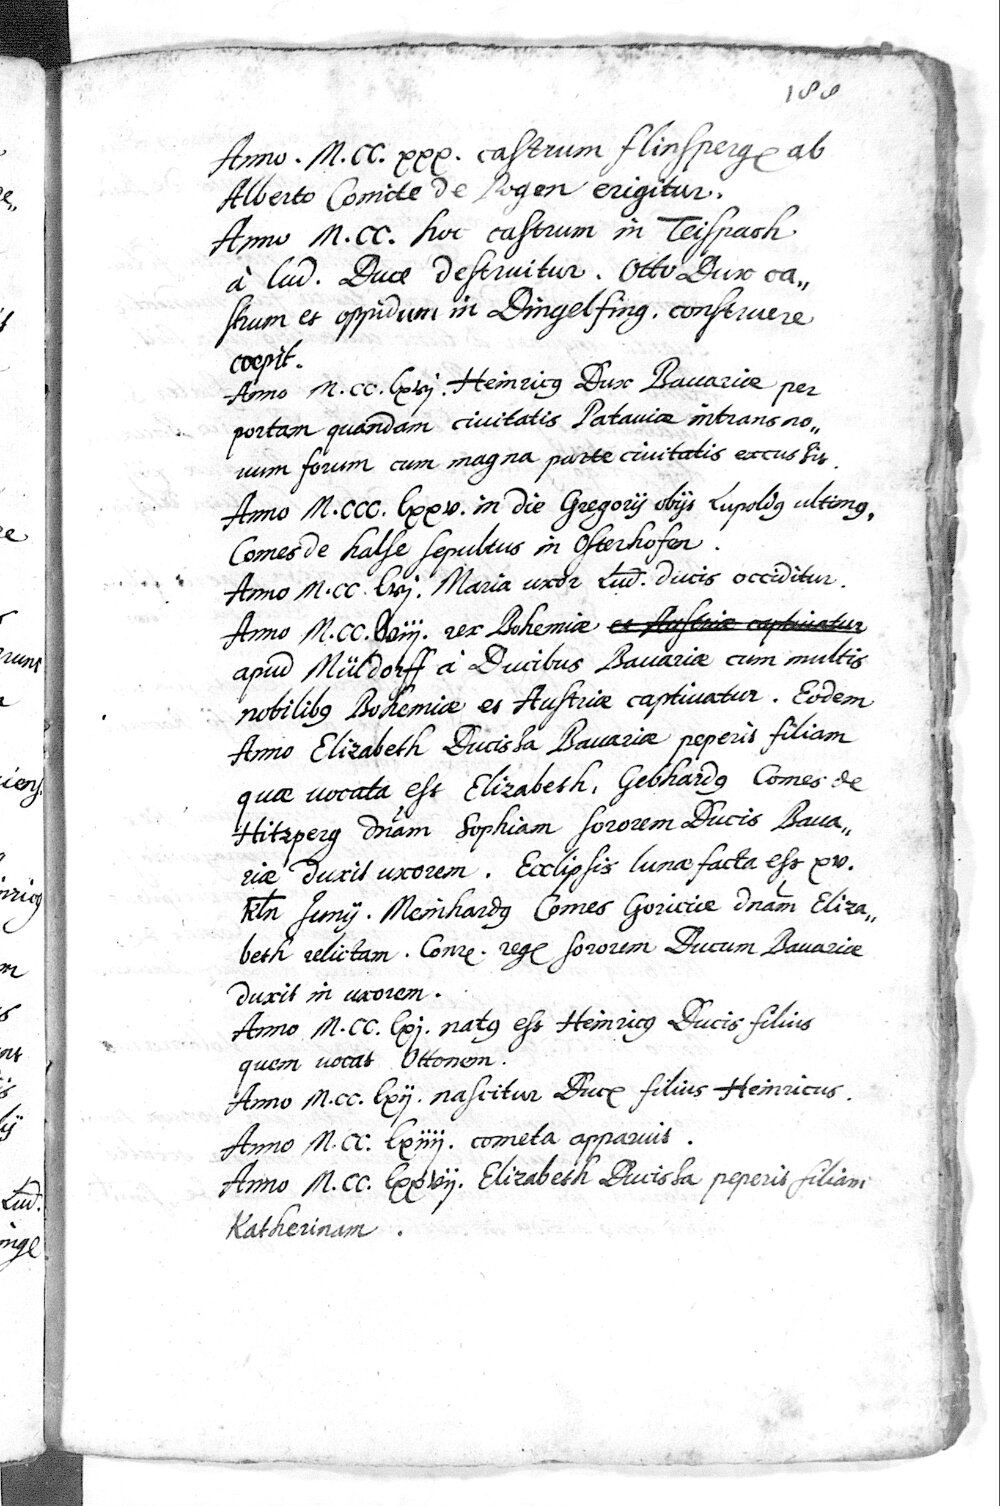 188
Anno . M.CC. xxx. castrum flinsperg ab
Alberto Comite de Rogen erigitur.
Anno M.CC. hoc castrum in Teispach
à Lud. Duce destruitur. Otto Dux ca„
strum et oppidum in Dingelfing. construere
coepit.
Anno M.CC. lxvj. Heinricꝰ Dux Bauariæ per
portam quandam ciuitatis Patauiæ intrans no„
uum forum cum magna parte ciuitatis excussit.
Anno M.CCC. lxxv. in die Gregorij obijt Lupoldꝰ ultimꝰ,
Comes de halse sepultus in Osterhofen .
Anno M.CC. lvj. Maria uxor Lud. ducis occiditur.
Anno M.CC. lviij. rex Bohemiæ et Austriæ captiuatur
apud Müldorff à Ducibus Bauariæ cum multis
nobilibꝰ Bohemiæ et Austriæ captiuatur. Eodem
Anno Elizabeth Ducissa Bauariæ peperit filiam
quæ uocata est Elizabeth, Gebhardꝰ Comes de
Hitzperg dnam Sophiam sororem Ducis Baua„
riæ duxit uxorem. Ecclipsis lunæ facta est xv.
Kln Junij. Meinhardꝰ Comes Goriciæ dnam Eliza„
beth relictam. Conr. reg sororem Ducum Bauariæ
duxit in uxorem.
Anno M.CC. lxj. natꝰ est Heinricꝰ Ducis filius
quem uocat Ottonem.
Anno M.CC. lxij. nascitur Duc filius Heinricus.
Anno M.CC. lxiiij. cometa apparuit .
Anno M.CC. lxxvij. Elizabeth Ducissa peperit filiam
Katherinam .